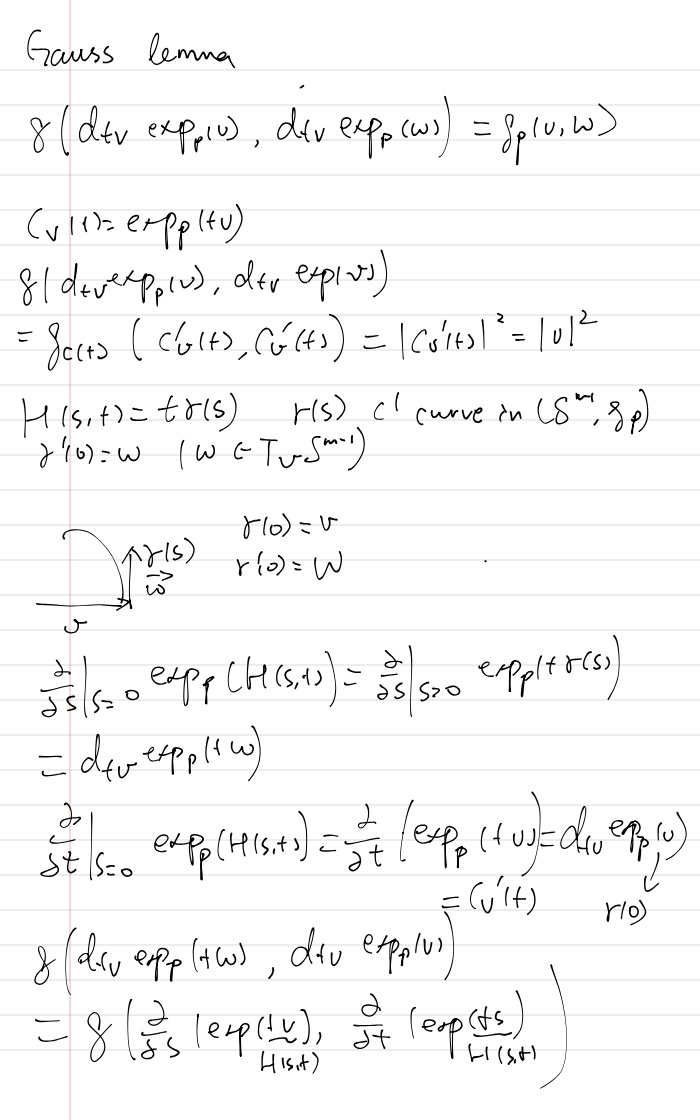 Gauss lemma
g(d_{tv} exp_p(v), d_{tv} exp_p(w)) = g_p(v, w)
C_v(t) = exp_p(tv)
g(d_{tv} exp_p(v), d_{tv} exp(v))
= g_{c(t)} (C_v'(t), C_v'(t)) = |C_v'(t)|² = |v|²
H(s,t) = tγ(s) γ(s) C¹ curve in (S^{m-1}, g_p)
γ'(0) = w (w ∈ T_v S^{m-1})
γ(0) = v
γ(s)
γ'(0) = w
w
v
∂/∂s|_{s=0} exp_p(H(s,t)) = ∂/∂s|_{s=0} exp_p(tγ(s))
= d_{tv} exp_p(tw)
∂/∂t|_{s=0} exp_p(H(s,t)) = ∂/∂t (exp_p(tv)) = d_{tv} exp_p(v)
= C_v'(t) γ(0)
g(d_{tv} exp_p(tw), d_{tv} exp_p(v))
= g(∂/∂s (exp(tv), ∂/∂t (exp(ts))
H(s,t) H(s,t)